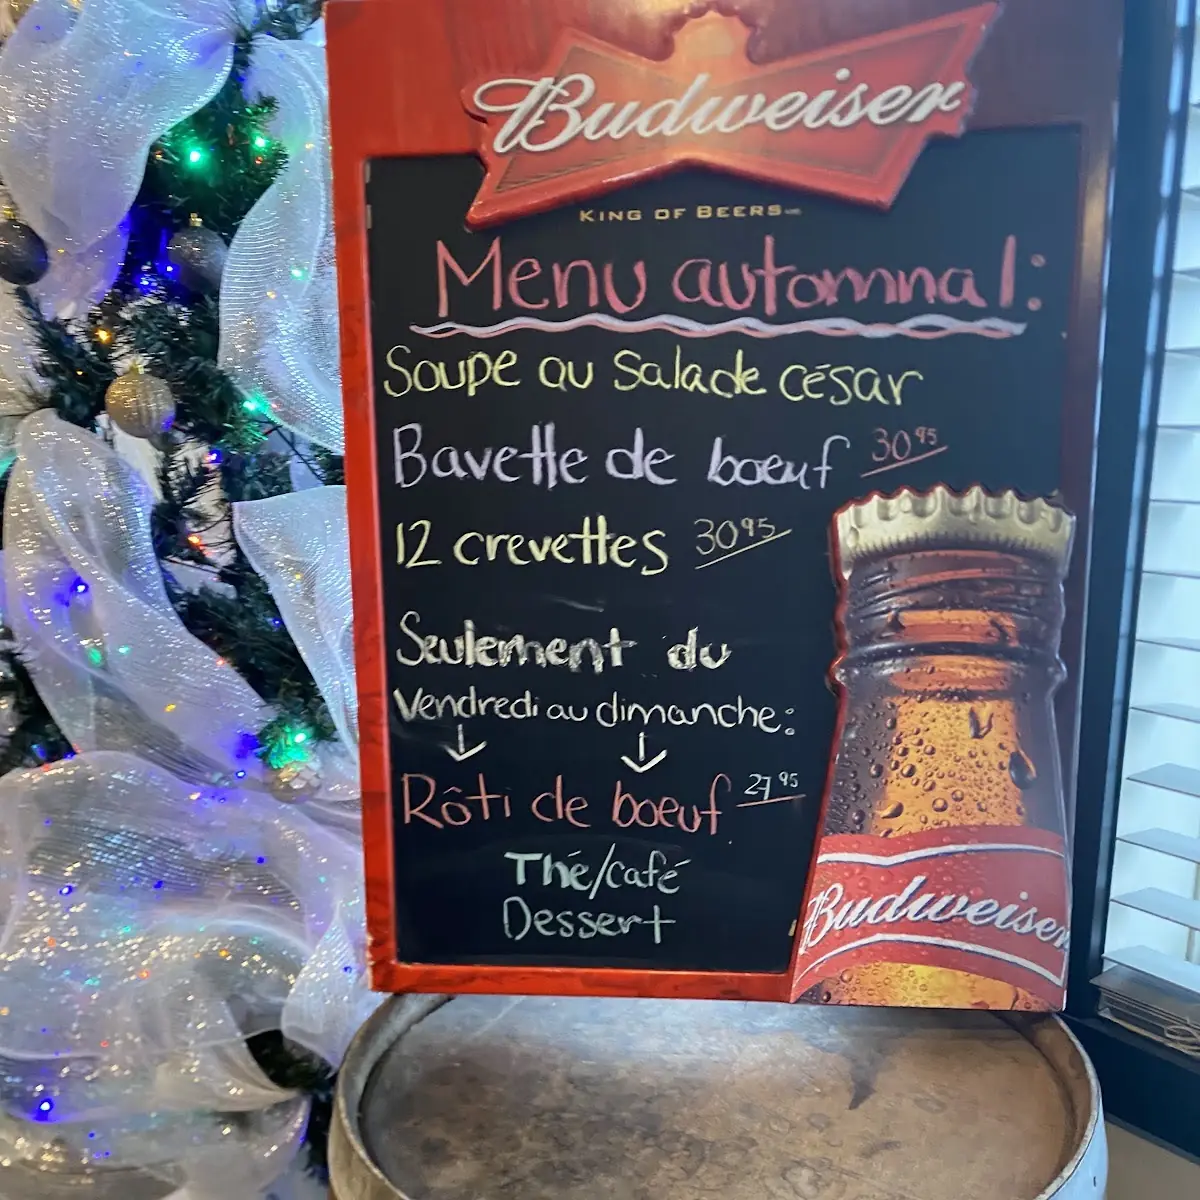 Budweiser
KING OF BEERS
Menu automnal:
Soupe ou Salade césar
Bavette de boeuf 30 95
12 crevettes 30 95
Seulement du
Vendredi au dimanche:
Rôti de boeuf 27 95
Thé/café
Dessert
Budweiser